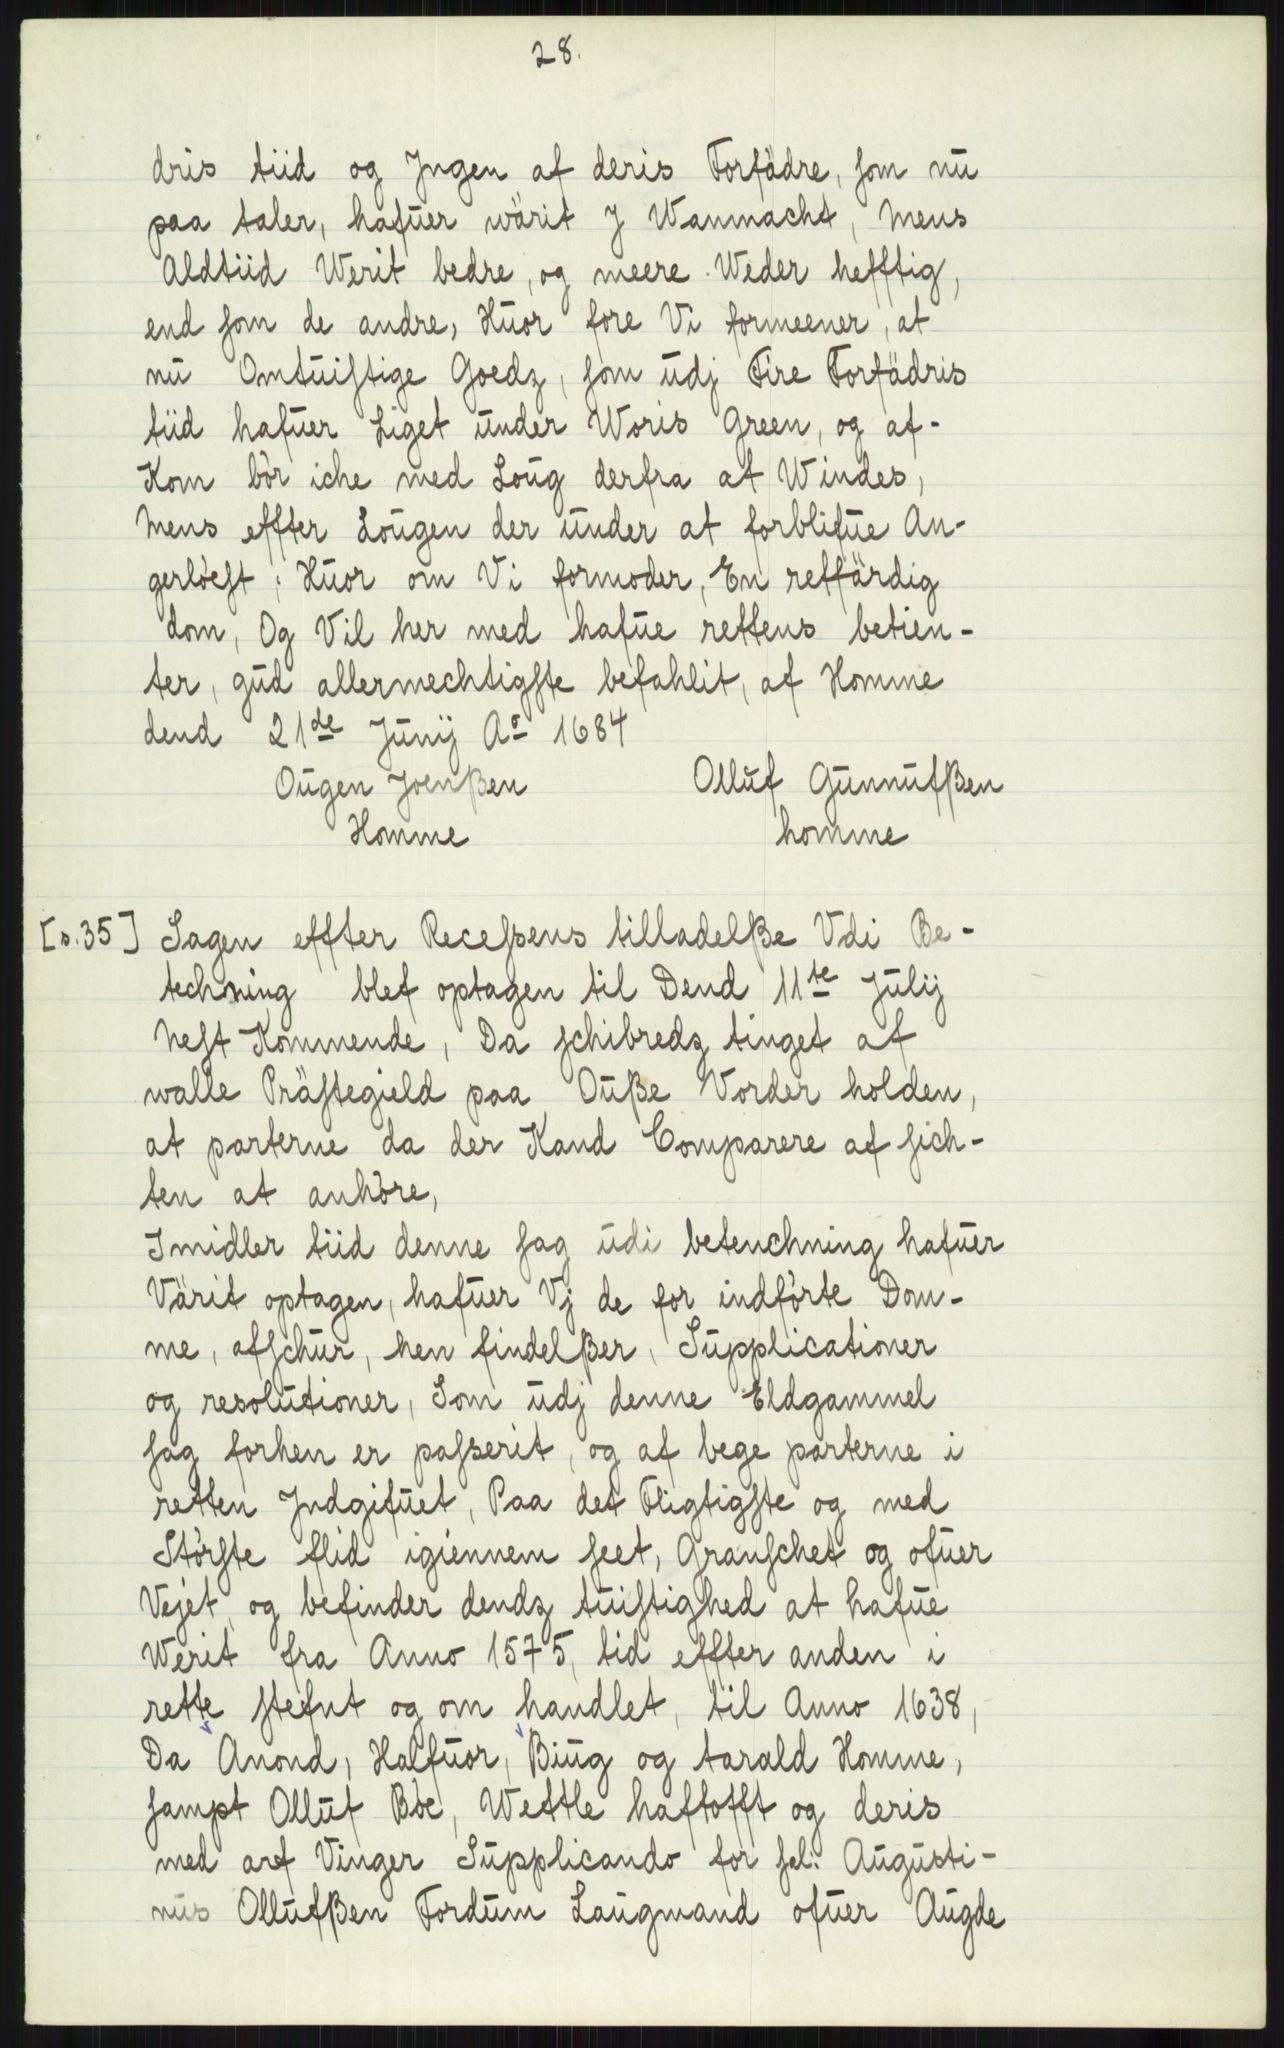 28.
dris tiid og Jngen af deris Forfädre, som nu
paa taler, hafuer wärit J Wanmacht, Mens
Aldtiid Werit bedre, og meere Weder hefftig,
end som de andre, Huor fore Vi formeener, at
nu Omtuistige Goedz, som udj Fire Forfädris
tiid hafuer Liget under Woris Green, og af-
Kom bör iche med Loug derfra at Windes,
Mens effter Lougen der under at forblifue An-
gerlöest; Huor om Vi formoder, En retfärdig
dom, Og Vil her med hafue rettens betien-
ter, gud allermechtigste befahlit, af Homme
dend 21de Junij Ao 1684
Ougen Joenßen Olluf Gunnufßen
Homme homme
[s.35] Sagen effter Recessens tilladelße Vdi Be-
techning blef optagen til Dend 11te Julij
Nest Kommende, Da schibredz tinget af
walle Prästegield paa Ouße Vorder holden,
at parterne da der Kand Comparere af sich-
ten at anhöre,
Imidler tiid denne sag udi betenchning hafuer
Värit optagen, hafuer Vj de for indförte Dom-
me, afschur, hen findelßer, Supplicationer
og resolutioner, Som udj denne Eldgammel
sag forhen er passerit, og af bege parterne i
retten Jndgifuet, Paa det Fligtigste og med
Störste flid igiennem seet, Granschet og ofuer
Vejet, og befinder dendz tuistighed at hafue
Werit fra Anno 1575, tid effter anden i
rette stefnt og om handlet, til Anno 1638,
Da Anond, Halfuor, Biug og tarald Homme,
sampt Olluf Böe, Wettle haftofft og deris
med arf Vinger Supplicando for sel: Augusti-
nus Ollufßen Fordum Laugmand ofuer Augde